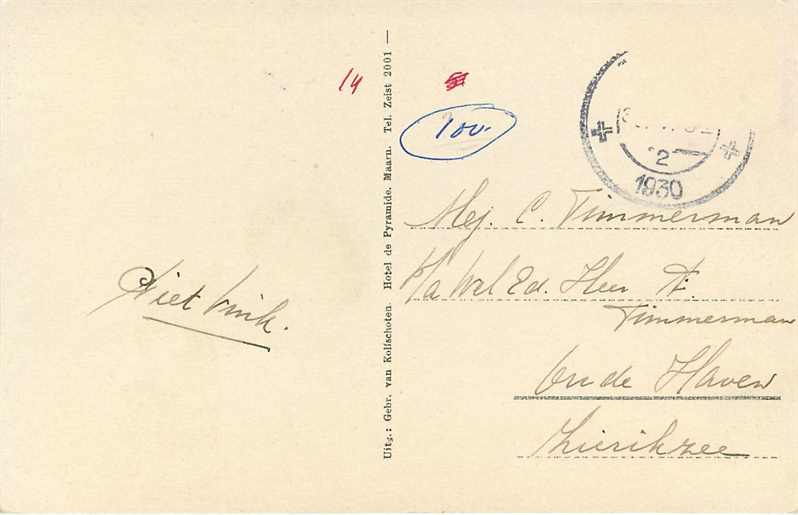 14
100.
2
1930
Mej. C. Timmerman
p/a Wel Ed. Heer A.
Timmerman
Oude Haven
Zierikzee
Piet Vink.
Uitg.: Gebr. van Kolfschoten. Hotel de Pyramide. Maarn. Tel. Zeist 2001 —